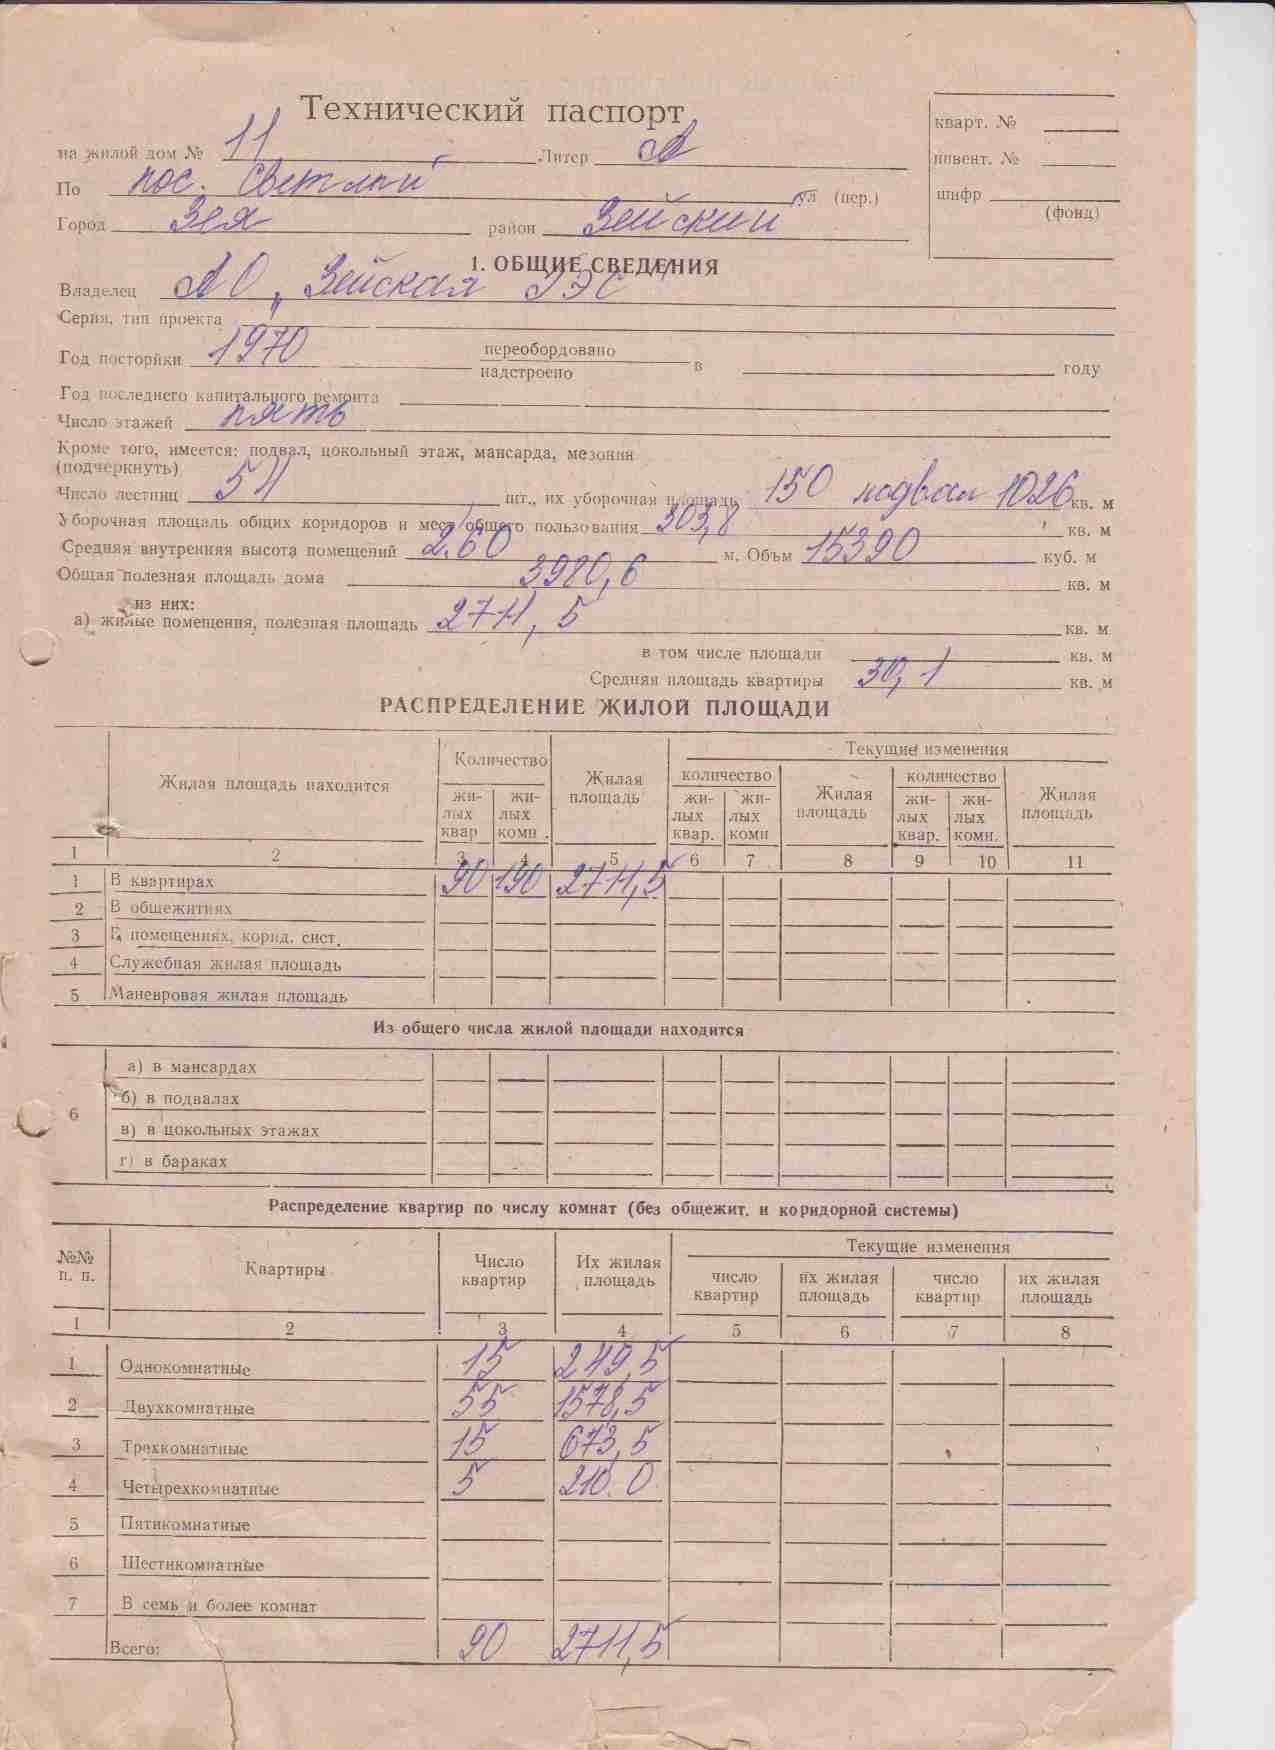 Технический паспорт
кварт. №
на жилой дом № 11 Литер А
инвент. №
По пос. Светлый ул (пер.)
шифр
(фонд)
Город Зея район Зейский
1. ОБЩИЕ СВЕДЕНИЯ
Владелец АО „Зейская ГЭС"
Серия, тип проекта
Год посторйки 1970 переобордовано
надстроено в году
Год последнего капитального ремонта
Число этажей пять
Кроме того, имеется: подвал, цокольный этаж, мансарда, мезонин
(подчеркнуть)
Число лестниц шт., их уборочная площадь 150 подвал 1026 кв. м
Уборочная площаль общих коридоров и мест общего пользования 303,8 кв. м
Средняя внутренняя высота помещений 2,60 м. Объм 15390 куб. м
Общая полезная площадь дома 3980,6 кв. м
из них:
а) жилые помещения, полезная площадь 2711,5 кв. м
в том числе площади кв. м
Средняя площадь квартиры 30,1 кв. м
РАСПРЕДЕЛЕНИЕ ЖИЛОЙ ПЛОЩАДИ
Жилая площадь находится Количество Жилая площадь Текущие изменения
количество Жилая площадь количество Жилая площадь
жи-лых квар жи-лых комн. жи-лых квар. жи-лых комн жи-лых квар. жи-лых комн.
1 2 3 4 5 6 7 8 9 10 11
1 В квартирах 90 190 2711,5
2 В общежитиях
3 В помещениях, корид. сист.
4 Служебная жилая площадь
5 Маневровая жилая площадь
Из общего числа жилой площади находится
а) в мансардах
6 б) в подвалах
в) в цокольных этажах
г) в бараках
Распределение квартир по числу комнат (без общежит. и коридорной системы)
№№ п. п. Квартиры Число квартир Их жилая площадь Текущие изменения
число квартир их жилая площадь число квартир их жилая площадь
1 2 3 4 5 6 7 8
1 Однокомнатные 15 249,5
2 Двухкомнатные 55 1578,5
3 Трехкомнатные 15 673,5
4 Четырехкомнатные 5 210.0
5 Пятикомнатные
6 Шестикомнатные
7 В семь и более комнат
Всего: 90 2711,5